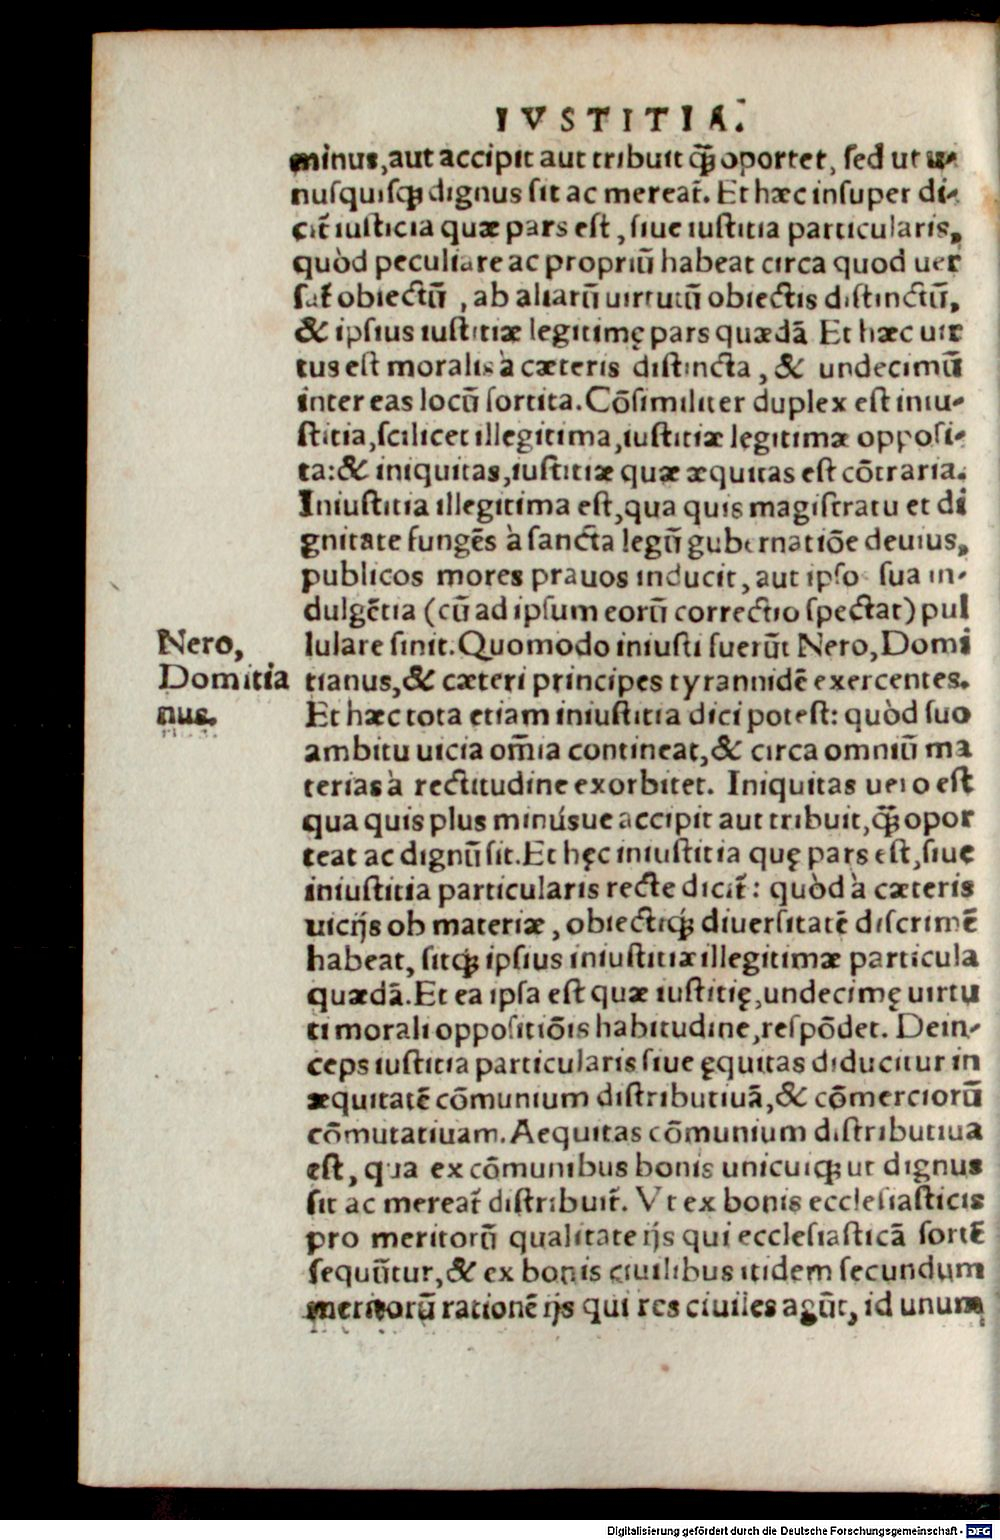 IVSTITIA.
minus, aut accipit aut tribuit q̃ oportet, sed ut u-
nusquisq; dignus sit ac mereat̃. Et hæc insuper di-
cit̃ iusticia quæ pars est, siue iustitia particularis,
quòd peculiare ac propriũ habeat circa quod uer
sat̃ obiectũ, ab aliarũ uirtutũ obiectis distinctũ,
& ipsius iustitiæ legitimę pars quædã Et hæc uir
tus est moralis à cæteris distincta, & undecimũ
inter eas locũ sortita. Cõsimiliter duplex est iniu-
stitia, scilicet illegitima, iustitiæ legitimæ opposi-
ta: & iniquitas, iustitiæ quæ æquitas est cõtraria.
Iniustitia illegitima est, qua quis magistratu et di
gnitate fungẽs à sancta legũ gubernatiõe deuius,
publicos mores prauos inducit, aut ipso sua in-
dulgẽtia (cũ ad ipsum eorũ correctio spectat) pul
lulare sinit. Quomodo iniusti fuerũt Nero, Domi
Nero,
Domitia
nus.
tianus, & cæteri principes tyrannidẽ exercentes.
Et hæc tota etiam iniustitia dici potest: quòd suo
ambitu uicia om̃ia contineat, & circa omniũ ma
terias à rectitudine exorbitet. Iniquitas uero est
qua quis plus minúsue accipit aut tribuit, q̃ opor
teat ac dignũ sit. Et hęc iniustitia quę pars est, siue
iniustitia particularis recte dicit̃: quòd à cæteris
uicijs ob materiæ, obiectiq; diuersitatẽ discrimẽ
habeat, sitq; ipsius iniustitiæ illegitimæ particula
quædã. Et ea ipsa est quæ iustitię, undecimę uirtu
ti morali oppositiõis habitudine, respõdet. Dein-
ceps iustitia particularis siue ęquitas diducitur in
æquitatẽ cõmunium distributiuã, & cõmerciorũ
cõmutatiuam. Aequitas cõmunium distributiua
est, qua ex cõmunibus bonis unicuiq; ut dignus
sit ac mereat̃ distribuit̃. Vt ex bonis ecclesiasticis
pro meritorũ qualitate ijs qui ecclesiasticã sortẽ
sequũtur, & ex bonis ciuilibus itidem secundum
meritorũ rationẽ ijs qui res ciuiles agũt, id unum
Digitalisierung gefördert durch die Deutsche Forschungsgemeinschaft - DFG